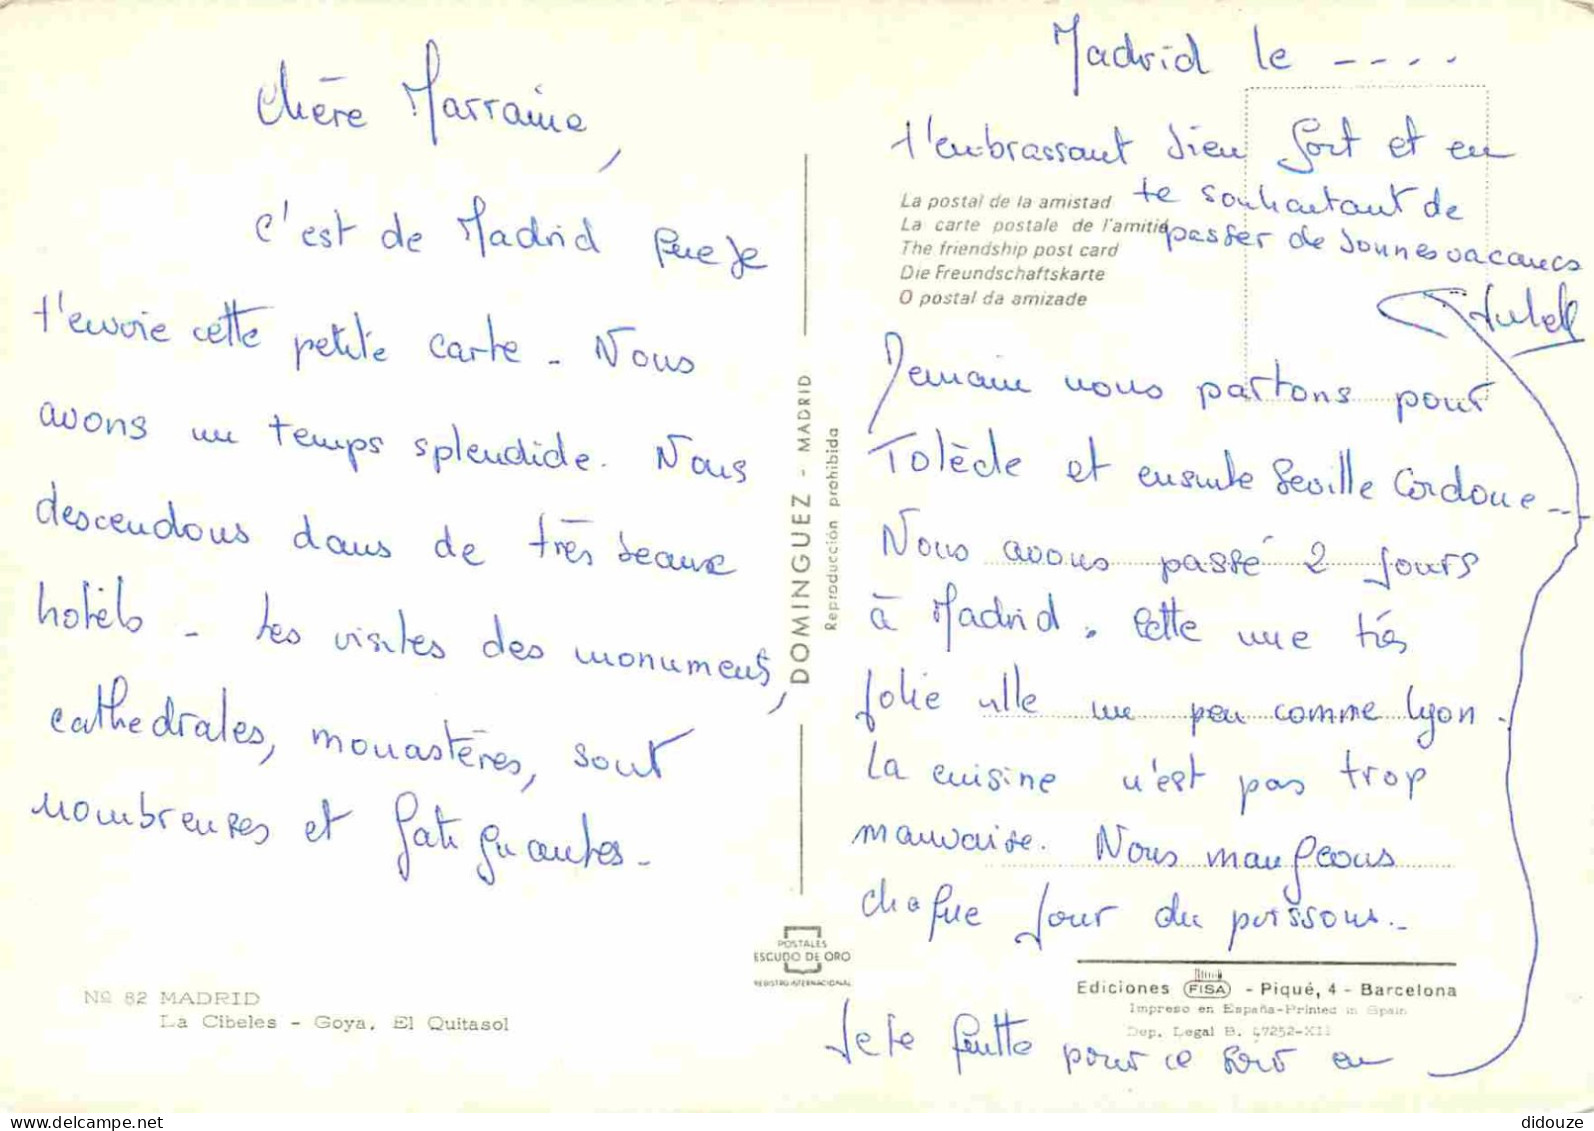 Chère Marraine,
c'est de Madrid que je
t'envoie cette petite carte - Nous
avons un temps splendide. Nous
descendons dans de très beaux
hotels - Les visites des monuments,
cathedrales, monastères, sont
nombreuses et fatiguantes -
Nº 82 MADRID
La Cibeles - Goya, El Quitasol
DOMINGUEZ - MADRID
Reproducción prohibida
POSTALES
ESCUDO DE ORO
REGISTRO INTERNACIONAL
Madrid le ----
Demain nous partons pour
Tolède et ensuite Seville Cordoue ---
Nous avons passé 2 jours
à Madrid. Cette une très
jolie ville un peu comme Lyon.
La cuisine n'est pas trop
mauvaise. Nous mangeons
chaque jour du poissons.-
Je te quitte pour ce soir en
t'embrassant bien fort et en
te souhaitant de
passer de bonnes vacances
La postal de la amistad
La carte postale de l'amitié
The friendship post card
Die Freundschaftskarte
O postal da amizade
Ediciones FISA - Piqué, 4 - Barcelona
Impreso en España-Printed in Spain
Dep. Legal B. 47252-XII
delcampe.net
didouze